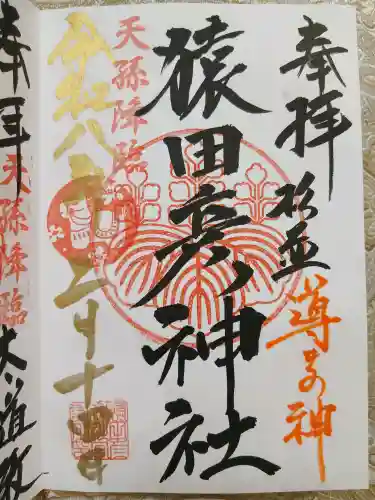 奉拝
杉並
導きの神
猿田彦神社
天孫降臨
令和八年二月十四日
奉拝
天孫降臨
大道教